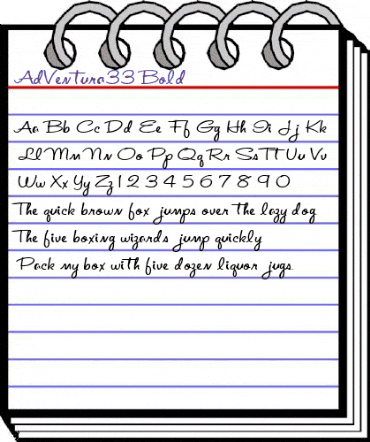 AdVentura33 Bold
Aa Bb Cc Dd Ee Ff Gg Hh Ii Jj Kk
Ll Mm Nn Oo Pp Qq Rr Ss Tt Uu Vv
Ww Xx Yy Zz 1 2 3 4 5 6 7 8 9 0
The quick brown fox jumps over the lazy dog
The five boxing wizards jump quickly
Pack my box with five dozen liquor jugs